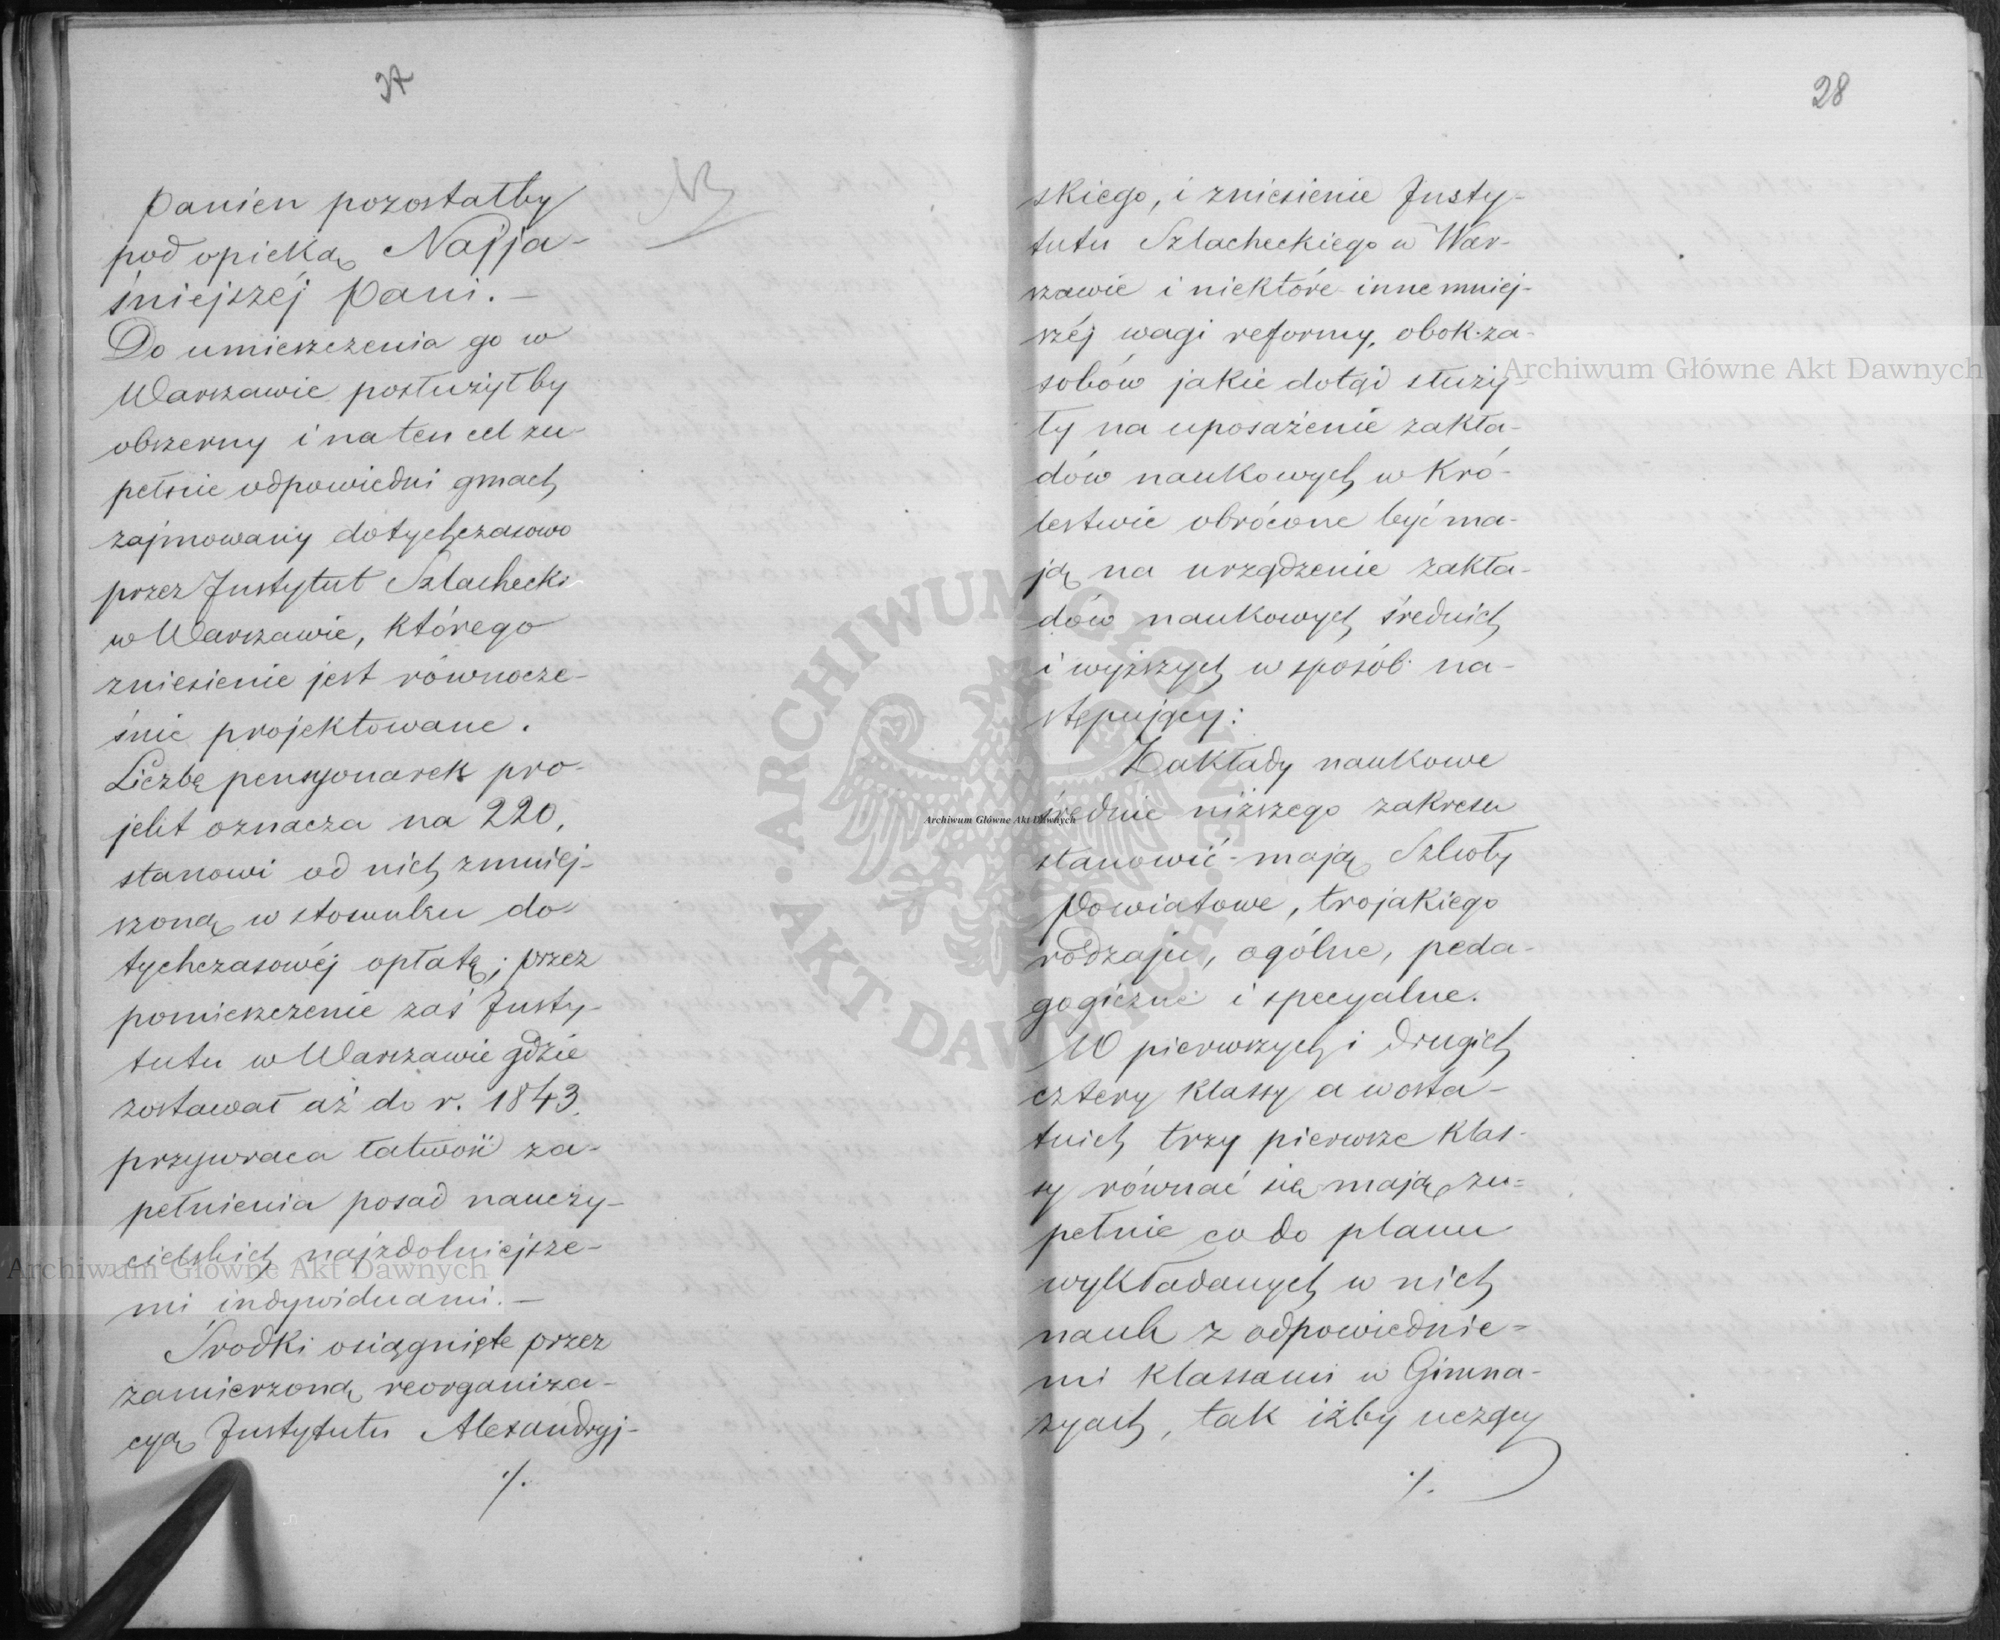 37
NB
Panien pozostałby
pod opieką Najja-
śniejszéj Pani. —
Do umieszczenia go w
Warszawie posłużyłby
obszerny i na ten cel zu-
pełnie odpowiedni gmach
zajmowany dotychczasowo
przez Instytut Szlachecki
w Warszawie, którego
zniesienie jest równocze-
śnie projektowane.
Liczbę pensyonarek pro-
jekt oznacza na 220,
stanowi od nich zmniej-
szoną w stosunku do-
tychczasowéj opłatę; przez
pomieszczenie zaś Insty-
tutu w Warszawie gdzie
zostawał aż do r. 1843.
przywraca łatwość za-
pełnienia posad nauczy-
cielskich najzdolniejsze-
mi indywiduami. —
Środki osiągnięte przez
zamierzoną reorganiza-
cyą Instytutu Alexandryj-
./.
28
skiego, i zniesienie Insty-
tutu Szlacheckiego w War-
szawie i niektóre inne mniej-
széj wagi reformy, obok za-
sobów jakie dotąd służy-
ły na uposażenie zakła-
dów naukowych w Kró-
lestwie obrócone być ma-
ją na urządzenie zakła-
dów naukowych średnich
i wyższych w sposób na-
stępujący:
Zakłady naukowe
średnie niższego zakresu
stanowić mają Szkoły
Powiatowe, trojakiego
rodzaju, ogólne, peda-
gogiczne i specyalne.
W pierwszych i drugich
cztery klassy a w osta-
tnich trzy pierwsze klas-
sy równać się mają zu-
pełnie co do planu
wykładanych w nich
nauk z odpowiednie-
mi klassami w Gimna-
zyach, tak iżby uczący
./.
Archiwum Główne Akt Dawnych
Archiwum Główne Akt Dawnych
Archiwum Główne Akt Dawnych
ARCHIWUM GŁÓWNE · AKT DAWNYCH ·